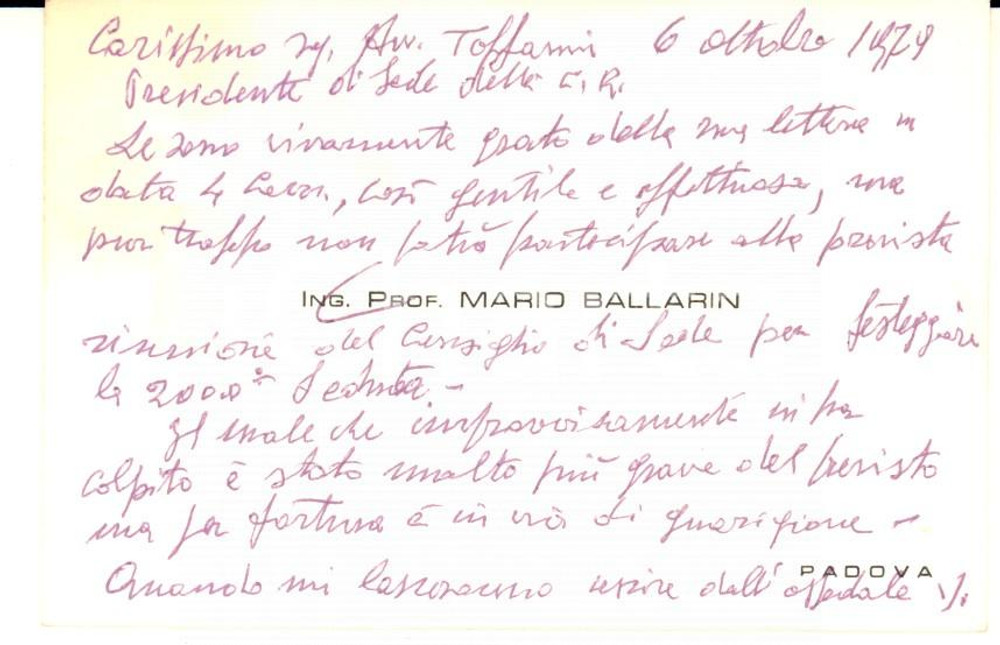 Carissimo Sig. Avv. Toffanin 6 ottobre 1979
Presidente di Sede della C.R.
Le sono vivamente grato della sua lettera in
data 4 corr., così gentile e affettuosa, ma
pur troppo non potrò partecipare alla prevista
ING. PROF. MARIO BALLARIN
riunione del Consiglio di Sede per festeggiare
la 2000ª Seduta -
Il male che improvvisamente mi ha
colpito è stato molto più grave del previsto
ma per fortuna è in via di guarigione -
PADOVA
Quando mi lasceranno uscire dall'ospedale ./.